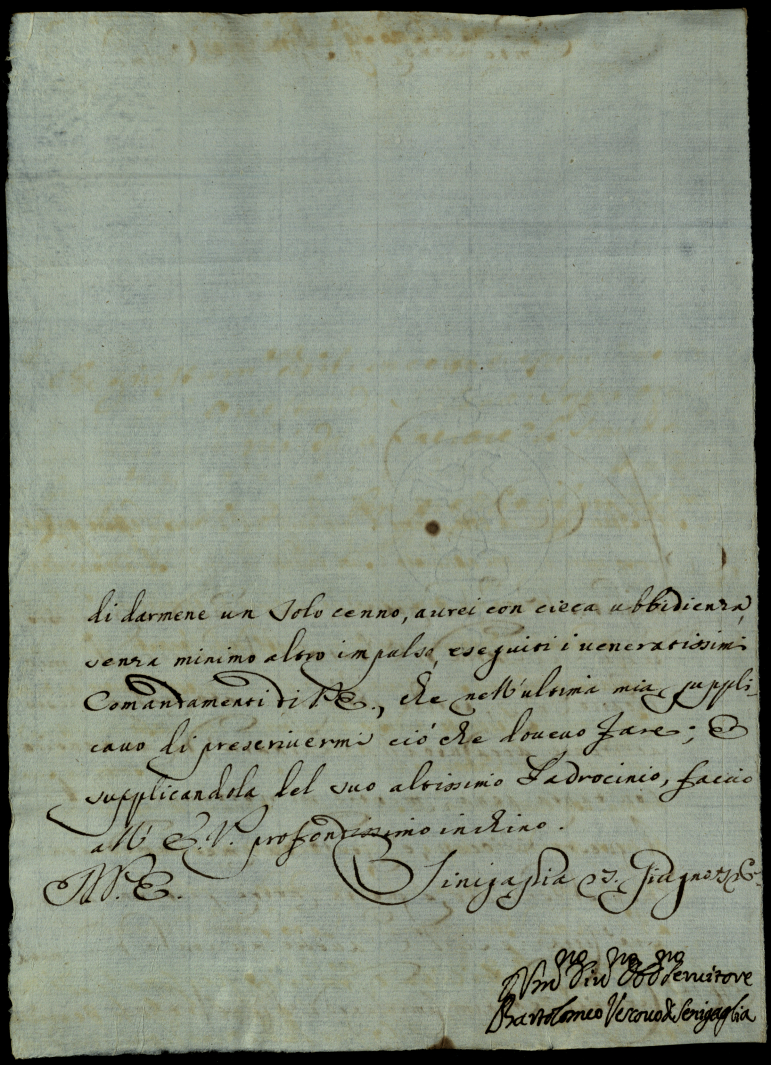 di darmene un solo cenno, aurei con cieca ubbidienza,
senza minimo altro impulso, eseguiti i veneratissimi
Comandamenti di V.E., che nell'ultima mia suppli-
cavo di prescrivermi ciò che dovevo fare; E
supplicandola del suo altissimo Padrocinio, faccio
all' E.V. profondissimo inchino.
Di V.E. Sinigaglia 23. Giugno
Um.mo Div.mo Obb.mo Servitore
Bartolomeo Vescovo di Senigaglia